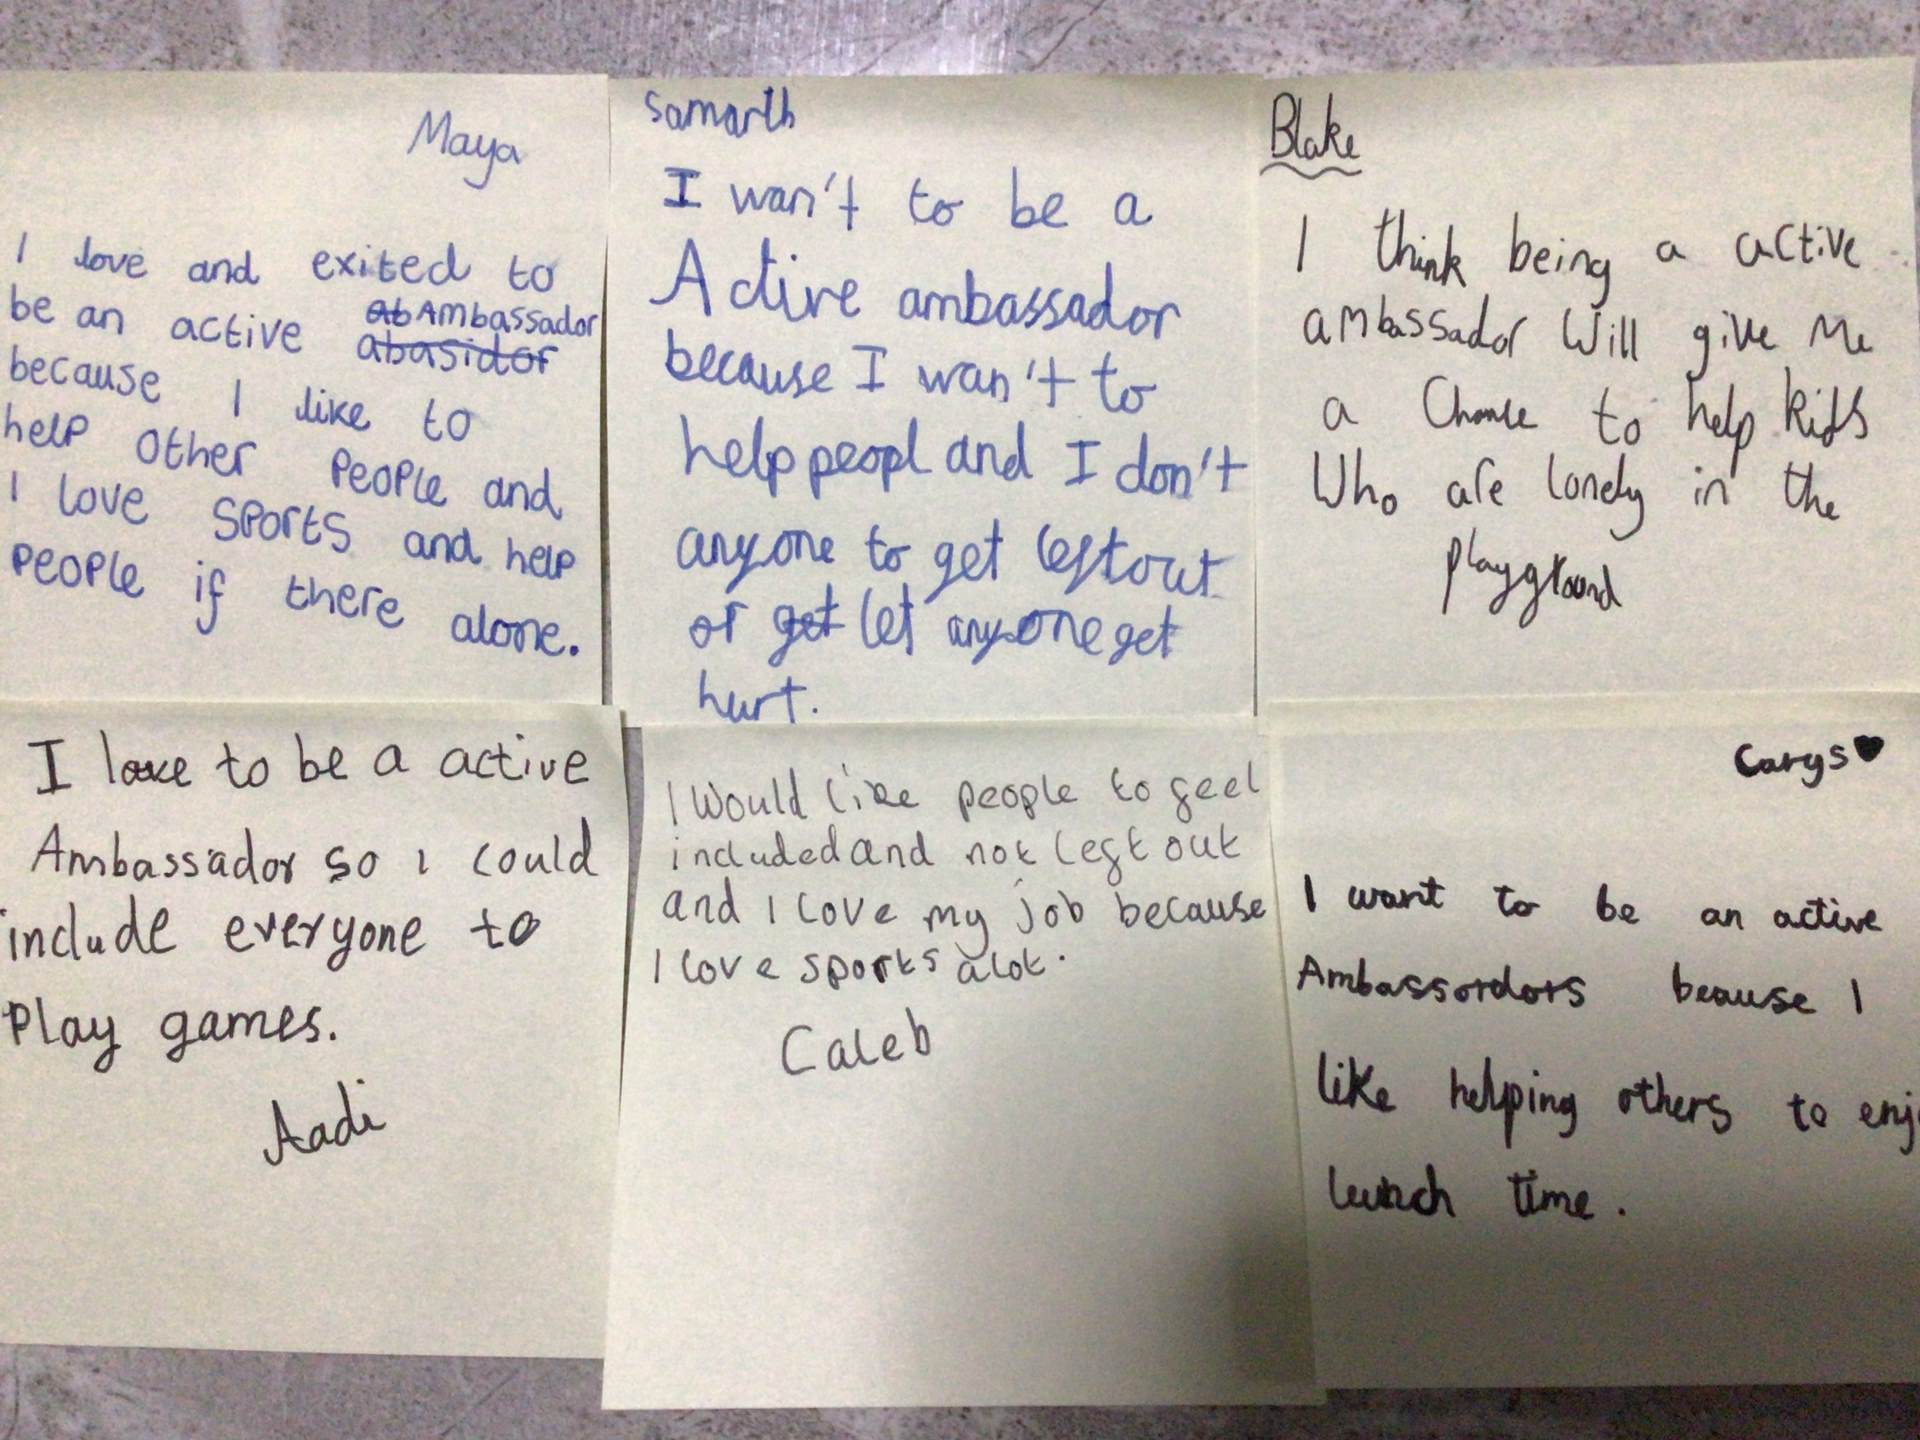 Maya
I love and exited to
be an active Ambassador
because I like to
help other people and
I love sports and help
people if there alone.
Samarth
I wan't to be a
Active ambassador
because I wan't to
help peopl and I don't
anyone to get left out
or get let anyone get
hurt.
Blake
I think being a active
ambassador will give me
a chance to help kids
who are lonely in the
playground
I love to be a active
Ambassador so i could
include everyone to
play games.
Aadi
I would like people to feel
included and not left out
and I love my job because
I love sports alot.
Caleb
Carys♥
I want to be an active
Ambassordors beause I
like helping others to enj
lunch time.